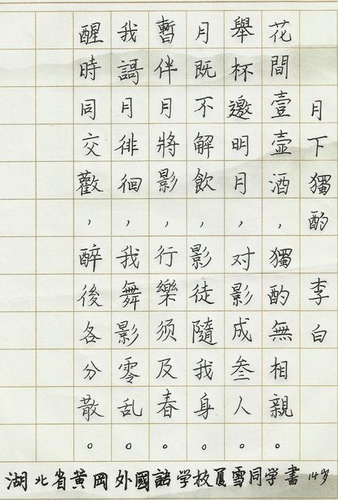 月下獨酌 李白
花間壹壺酒,獨酌無相親。
舉杯邀明月,对影成叁人。
月既不解飲,影徒隨我身。
暫伴月將影,行樂须及春。
我謌月徘徊,我舞影零乱。
醒時同交歡,醉後各分散。
湖北省黄岡外國語学校夏雪同学書 14岁